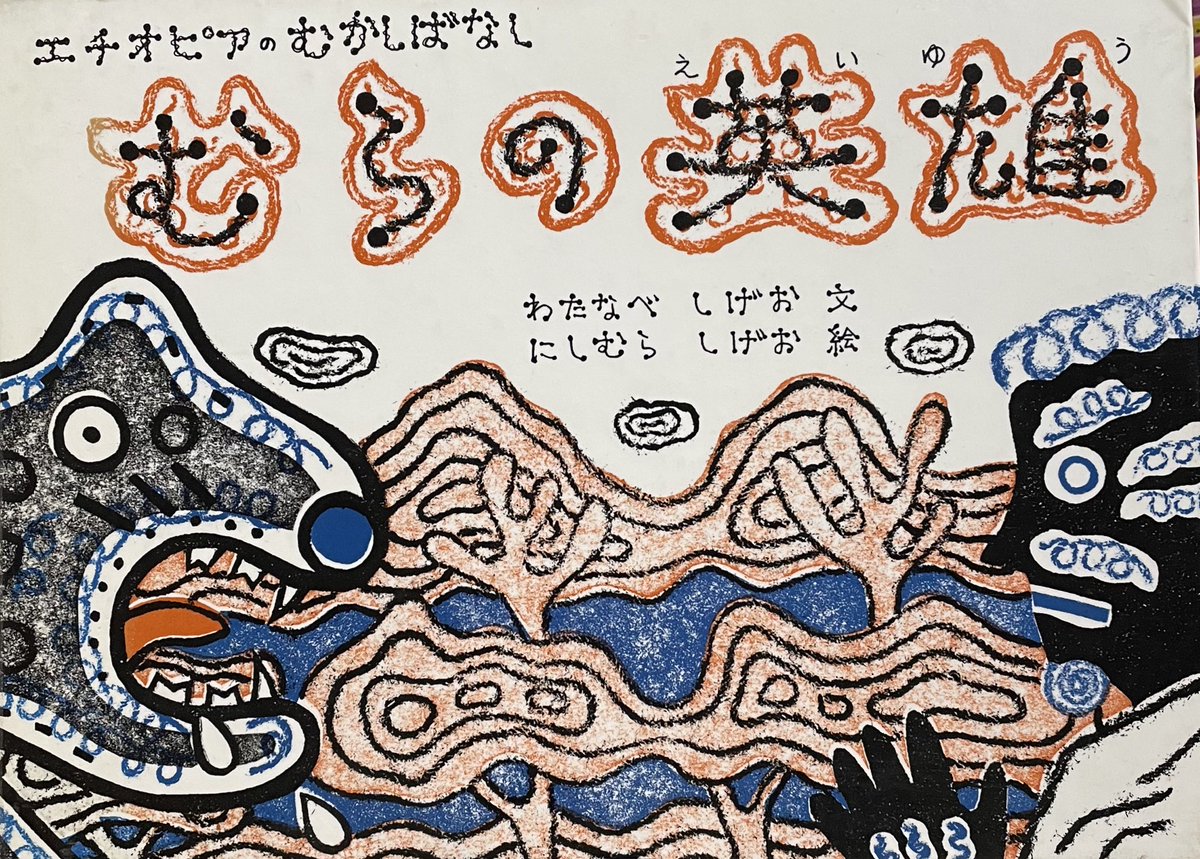 エチオピアのむかしばなし
むらの英雄
えいゆう
わたなべ しげお 文
にしむら しげお 絵